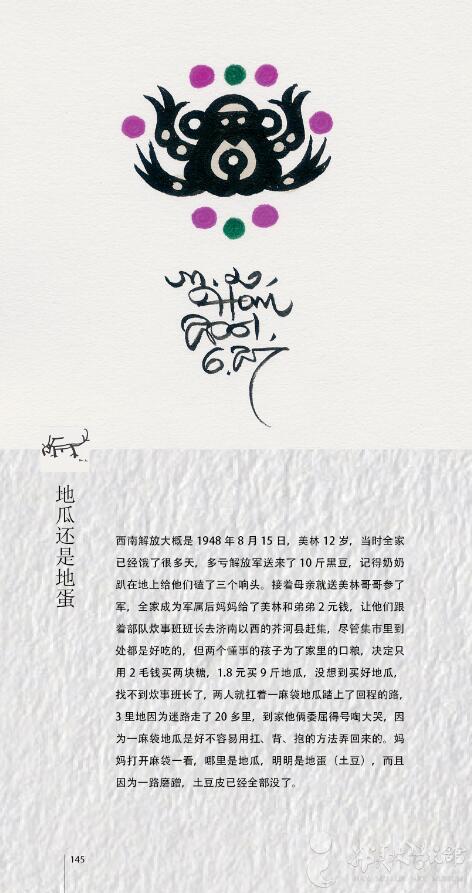 2001.
6.27
地瓜还是地蛋
西南解放大概是 1948 年 8 月 15 日，美林 12 岁，当时全家
已经饿了很多天，多亏解放军送来了 10 斤黑豆，记得奶奶
趴在地上给他们磕了三个响头。接着母亲就送美林哥哥参了
军，全家成为军属后妈妈给了美林和弟弟 2 元钱，让他们跟
着部队炊事班班长去济南以西的芥河县赶集，尽管集市里到
处都是好吃的，但两个懂事的孩子为了家里的口粮，决定只
用 2 毛钱买两块糖，1.8 元买 9 斤地瓜，没想到买好地瓜，
找不到炊事班长了，两人就扛着一麻袋地瓜踏上了回程的路，
3 里地因为迷路走了 20 多里，到家他俩委屈得号啕大哭，因
为一麻袋地瓜是好不容易用扛、背、抱的方法弄回来的。妈
妈打开麻袋一看，哪里是地瓜，明明是地蛋（土豆），而且
因为一路磨蹭，土豆皮已经全部没了。
145